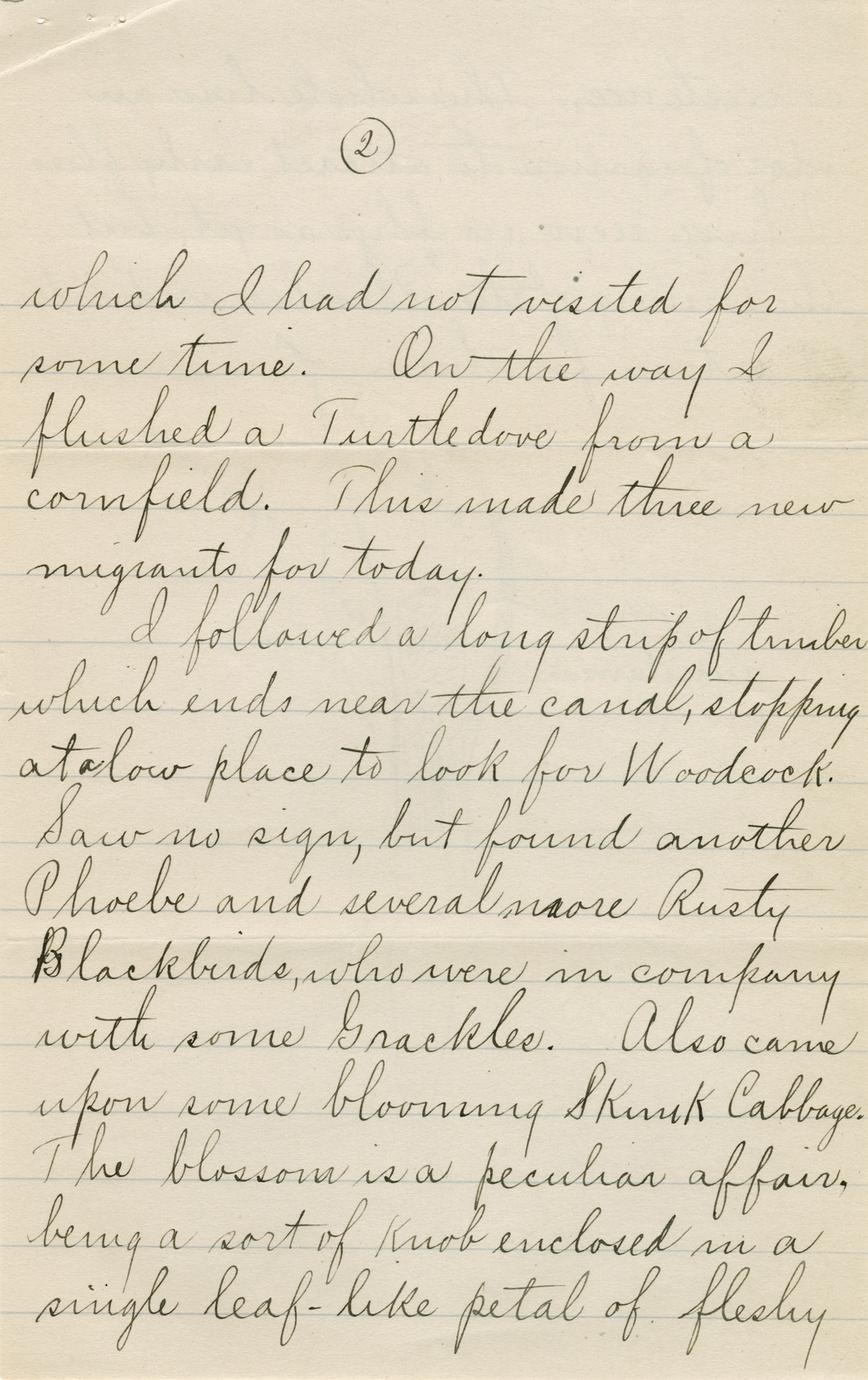 2
which I had not visited for
some time. On the way I
flushed a Turtledove from a
cornfield. This made three new
migrants for today.
I followed a long strip of timber
which ends near the canal, stopping
at a low place to look for Woodcock.
Saw no sign, but found another
Phoebe and several more Rusty
Blackbirds, who were in company
with some Grackles. Also came
upon some blooming Skunk Cabbage.
The blossom is a peculiar affair,
being a sort of knob enclosed in a
single leaf-like petal of fleshy